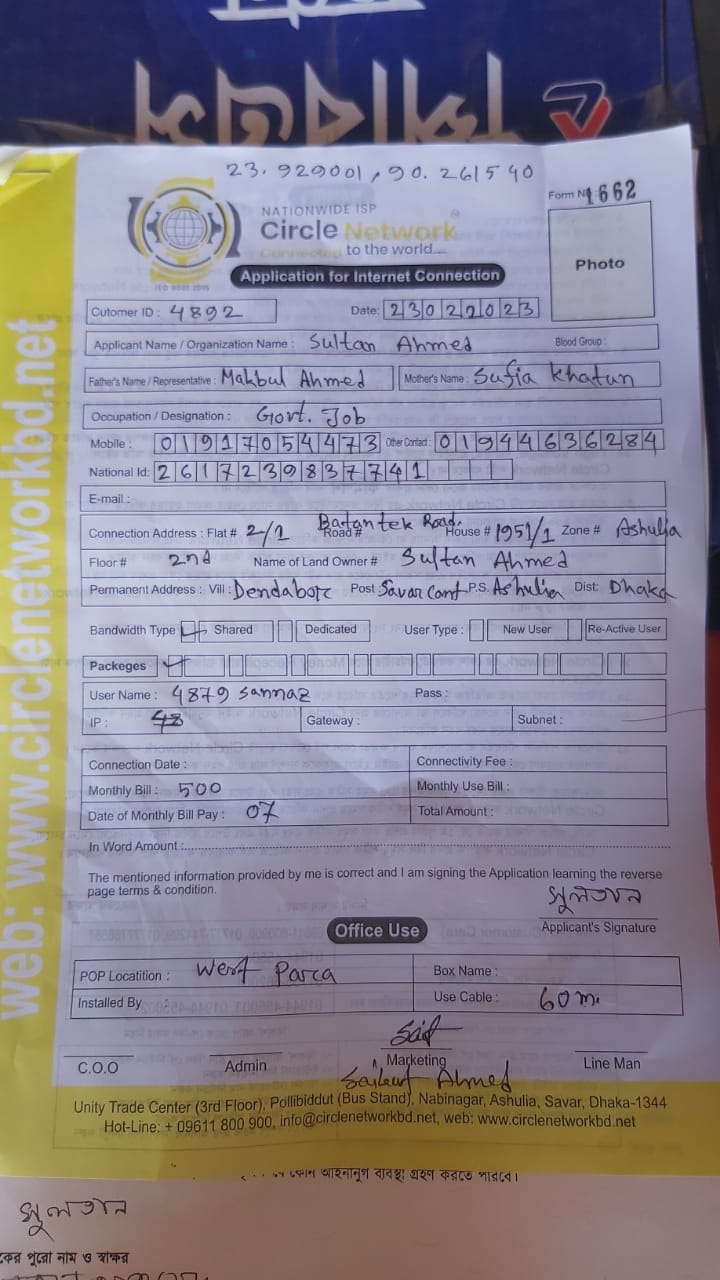 23.929001, 90.261540
Form No 1662
NATIONWIDE ISP
Circle Network
Connected to the world...
ISO 9001:2015
Application for Internet Connection
Photo
Cutomer ID : 4892 Date: 23022023
Applicant Name / Organization Name : Sultan Ahmed Blood Group :
Father's Name / Representative : Makbul Ahmed Mother's Name : Sufia Khatun
Occupation / Designation : Govt. Job
Mobile : 01917054473 Other Contact : 01944636284
National Id: 2617239837741
E-mail :
Connection Address : Flat # 2/1 Road # Batantek Road. House # 1951/1 Zone # Ashulia
Floor # 2nd Name of Land Owner # Sultan Ahmed
Permanent Address : Vill : Dendabore Post Savar Cant P.S. Ashulia Dist: Dhaka
Bandwidth Type Shared Dedicated User Type : New User Re-Active User
Packeges
User Name : 4879 Sannaz Pass :
IP : 48 Gateway : Subnet :
Connection Date : Connectivity Fee :
Monthly Bill : 500 Monthly Use Bill :
Date of Monthly Bill Pay : 07 Total Amount :
In Word Amount :
The mentioned information provided by me is correct and I am signing the Application learning the reverse
page terms & condition.
সুলতান
Applicant's Signature
Office Use
POP Locatition : West Parca Box Name :
Installed By : Use Cable : 60 m.
C.O.O Admin Marketing Line Man
Ahmed
Unity Trade Center (3rd Floor), Pollibiddut (Bus Stand), Nabinagar, Ashulia, Savar, Dhaka-1344
Hot-Line: + 09611 800 900, info@circlenetworkbd.net, web: www.circlenetworkbd.net
web: www.circlenetworkbd.net
কোন আইনানুগ ব্যবস্থা গ্রহণ করতে পারবে।
সুলতান
কের পুরো নাম ও স্বাক্ষর